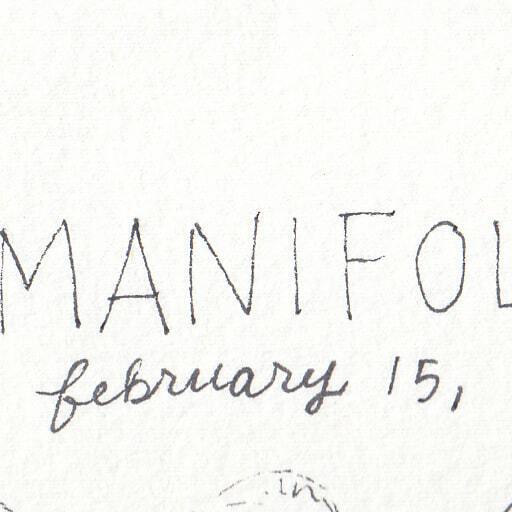 MANIFOL
february 15,